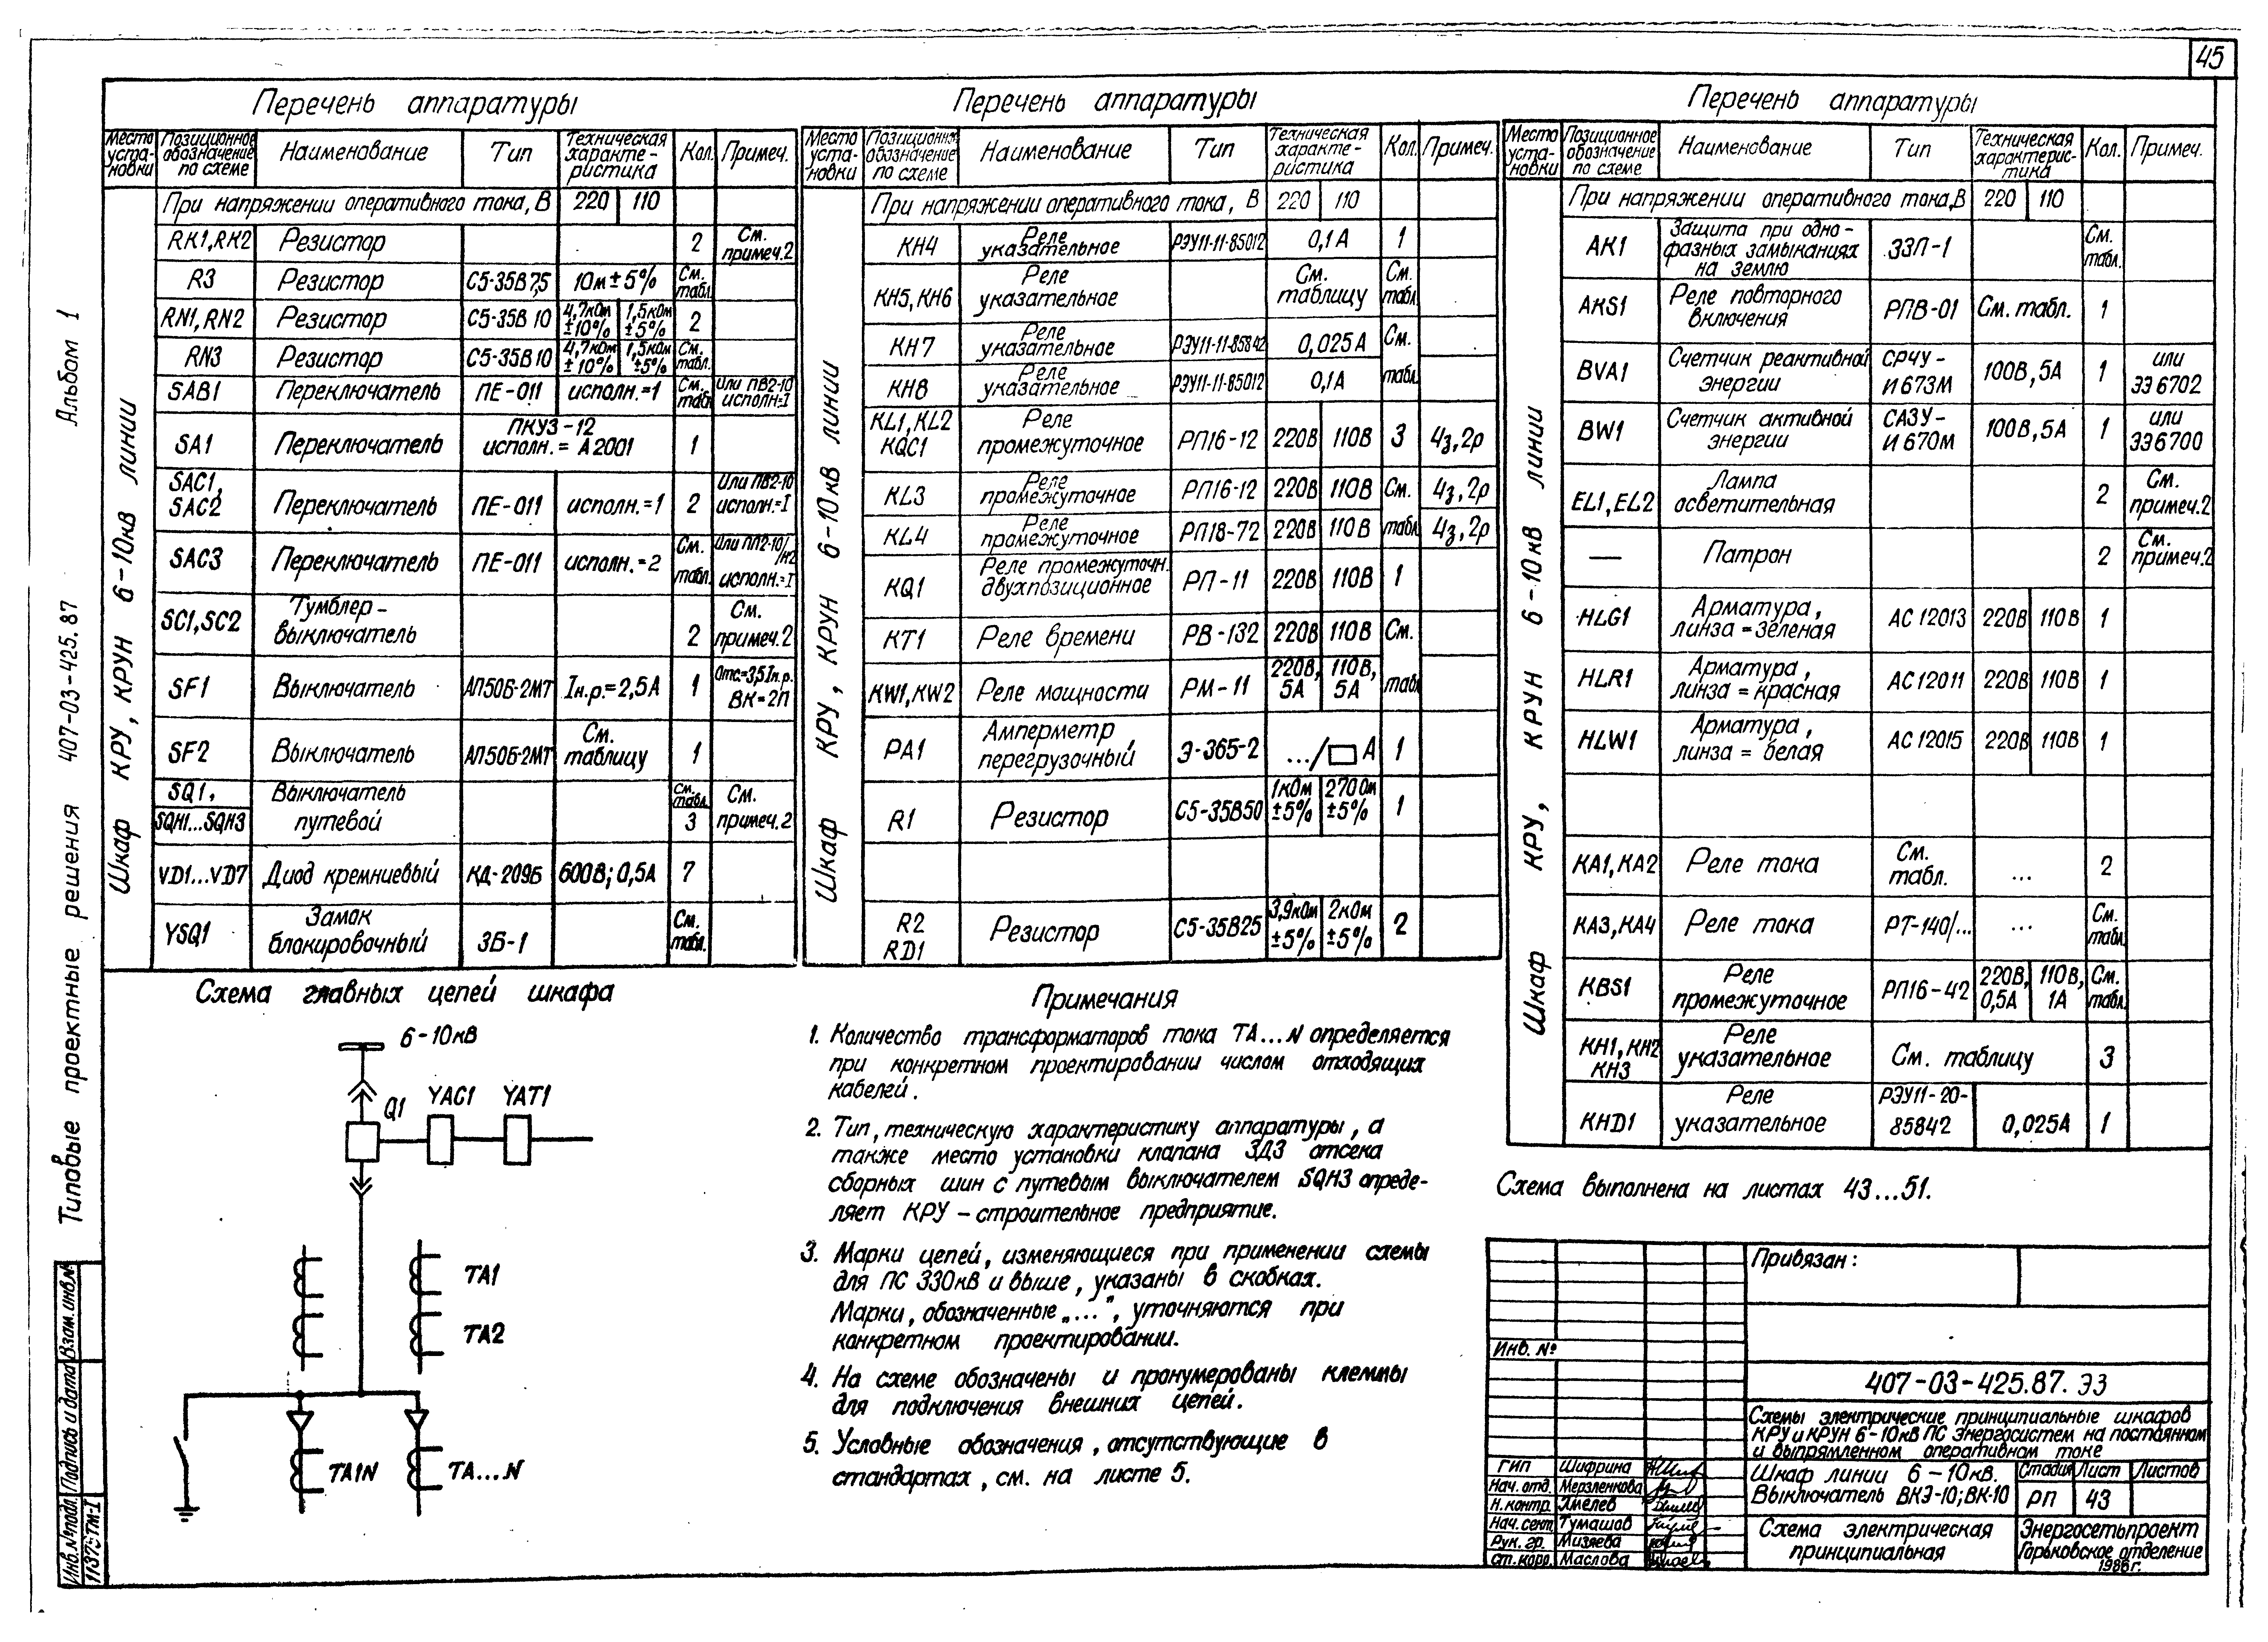 45
Альбом 1
Типовые проектные решения 407-03-425.87
Перечень аппаратуры
Место установки | Позиционное обозначение по схеме | Наименование | Тип | Техническая характеристика | Кол. | Примеч.
Шкаф КРУ, КРУН 6-10кв линии
При напряжении оперативного тока, В | 220 | 110
RK1, RK2 | Резистор | 2 | См. примеч.2
R3 | Резистор | С5-35В7,5 | 1Ом±5% | См. табл.
RN1, RN2 | Резистор | С5-35В 10 | 4,7кОм ±10% | 1,5кОм ±5% | 2
RN3 | Резистор | С5-35В10 | 4,7кОм ±10% | 1,5кОм ±5% | См. табл.
SAB1 | Переключатель | ПЕ-011 | исполн.=1 | См. табл. | Или ПВ2-10 исполн=I
SA1 | Переключатель | ПКУ3-12 исполн.= А2001 | 1
SAC1, SAC2 | Переключатель | ПЕ-011 | исполн.=1 | 2 | Или ПВ2-10 исполн.=I
SAC3 | Переключатель | ПЕ-011 | исполн.=2 | См. табл. | Или ПП2-10/Н2 исполн.=I
SC1, SC2 | Тумблер-выключатель | 2 | См. примеч.2
SF1 | Выключатель | АП50Б-2МТ | Iн.р.=2,5А | 1 | Отс=3,5Iн.р. ВК=2П
SF2 | Выключатель | АП50Б-2МТ | См. таблицу | 1
SQ1, | Выключатель путевой | См. табл. | См. примеч.2
SQH1...SQH3 | 3
VD1...VD7 | Диод кремниевый | КД-209Б | 600В; 0,5А | 7
YSQ1 | Замок блокировочный | ЗБ-1 | См. табл.
Перечень аппаратуры
Место установки | Позиционное обозначение по схеме | Наименование | Тип | Техническая характеристика | Кол. | Примеч.
Шкаф КРУ, КРУН 6-10кв линии
При напряжении оперативного тока, В | 220 | 110
KH4 | Реле указательное | РЭУ11-11-85012 | 0,1А | 1
KH5, KH6 | Реле указательное | См. таблицу | См. табл.
KH7 | Реле указательное | РЭУ11-11-85842 | 0,025А | См. табл.
KH8 | Реле указательное | РЭУ11-11-85012 | 0,1А
KL1, KL2 KQC1 | Реле промежуточное | РП16-12 | 220В | 110В | 3 | 4з,2р
KL3 | Реле промежуточное | РП16-12 | 220В | 110В | См. табл. | 4з,2р
KL4 | Реле промежуточное | РП18-72 | 220В | 110В | 4з,2р
KQ1 | Реле промежуточн. двухпозиционное | РП-11 | 220В | 110В | 1
KT1 | Реле времени | РВ-132 | 220В | 110В | См. табл.
KW1, KW2 | Реле мощности | РМ-11 | 220В, 5А | 110В, 5А
PA1 | Амперметр перегрузочный | Э-365-2 | .../□ А | 1
R1 | Резистор | С5-35В50 | 1кОм ±5% | 270Ом ±5% | 1
R2 RD1 | Резистор | С5-35В25 | 3,9кОм ±5% | 2кОм ±5% | 2
Перечень аппаратуры
Место установки | Позиционное обозначение по схеме | Наименование | Тип | Техническая характеристика | Кол. | Примеч.
Шкаф КРУ, КРУН 6-10кв линии
При напряжении оперативного тока,В | 220 | 110
AK1 | Защита при однофазных замыканиях на землю | ЗЗП-1 | См. табл.
AKS1 | Реле повторного включения | РПВ-01 | См. табл. | 1
BVA1 | Счетчик реактивной энергии | СРЧУ-И673М | 100В, 5А | 1 | или ЭЭ6702
BW1 | Счетчик активной энергии | САЗУ-И670М | 100В, 5А | 1 | или ЭЭ6700
EL1, EL2 | Лампа осветительная | 2 | См. примеч.2
— | Патрон | 2 | См. примеч.2
HLG1 | Арматура, линза=зеленая | АС 12013 | 220В | 110В | 1
HLR1 | Арматура, линза=красная | АС12011 | 220В | 110В | 1
HLW1 | Арматура, линза= белая | АС 12015 | 220В | 110В | 1
KA1, KA2 | Реле тока | См. табл. | ... | 2
KA3, KA4 | Реле тока | РТ-140/... | ... | См. табл.
KBS1 | Реле промежуточное | РП16-42 | 220В, 0,5А | 110В, 1А | См. табл.
KH1, KH2 KH3 | Реле указательное | См. таблицу | 3
KHD1 | Реле указательное | РЭУ11-20-85842 | 0,025А | 1
Схема главных цепей шкафа
6-10кВ
Q1 YAC1 YAT1
TA1
TA2
TA1N TA...N
Примечания
1. Количество трансформаторов тока ТА...N определяется
при конкретном проектировании числом отходящих
кабелей.
2. Тип, техническую характеристику аппаратуры, а
также место установки клапана ЗДЗ отсека
сборных шин с путевым выключателем SQH3 опреде-
ляет КРУ-строительное предприятие.
3. Марки цепей, изменяющиеся при применении схемы
для ПС 330кВ и выше, указаны в скобках.
Марки, обозначенные „...", уточняются при
конкретном проектировании.
4. На схеме обозначены и пронумерованы клеммы
для подключения внешних цепей.
5. Условные обозначения, отсутствующие в
стандартах, см. на листе 5.
Схема выполнена на листах 43...51.
Привязан:
Инв. №
407-03-425.87. ЭЗ
Схемы электрические принципиальные шкафов
КРУ и КРУН 6-10кВ ПС энергосистем на постоянном
и выпрямленном оперативном токе
ГИП Шифрина
Нач. отд. Мерзленкова
Н. контр. Хмелев
Нач. сект. Тумашов
Рук. гр. Мизяева
Ст. корр. Маслова
Шкаф линии 6-10кв.
Выключатель ВКЭ-10; ВК-10
Стадия Лист Листов
РП 43
Схема электрическая
принципиальная
Энергосетьпроект
Горьковское отделение
1986г.
Инв.№подл. Подпись и дата Взам.инв.№
11375тм-I